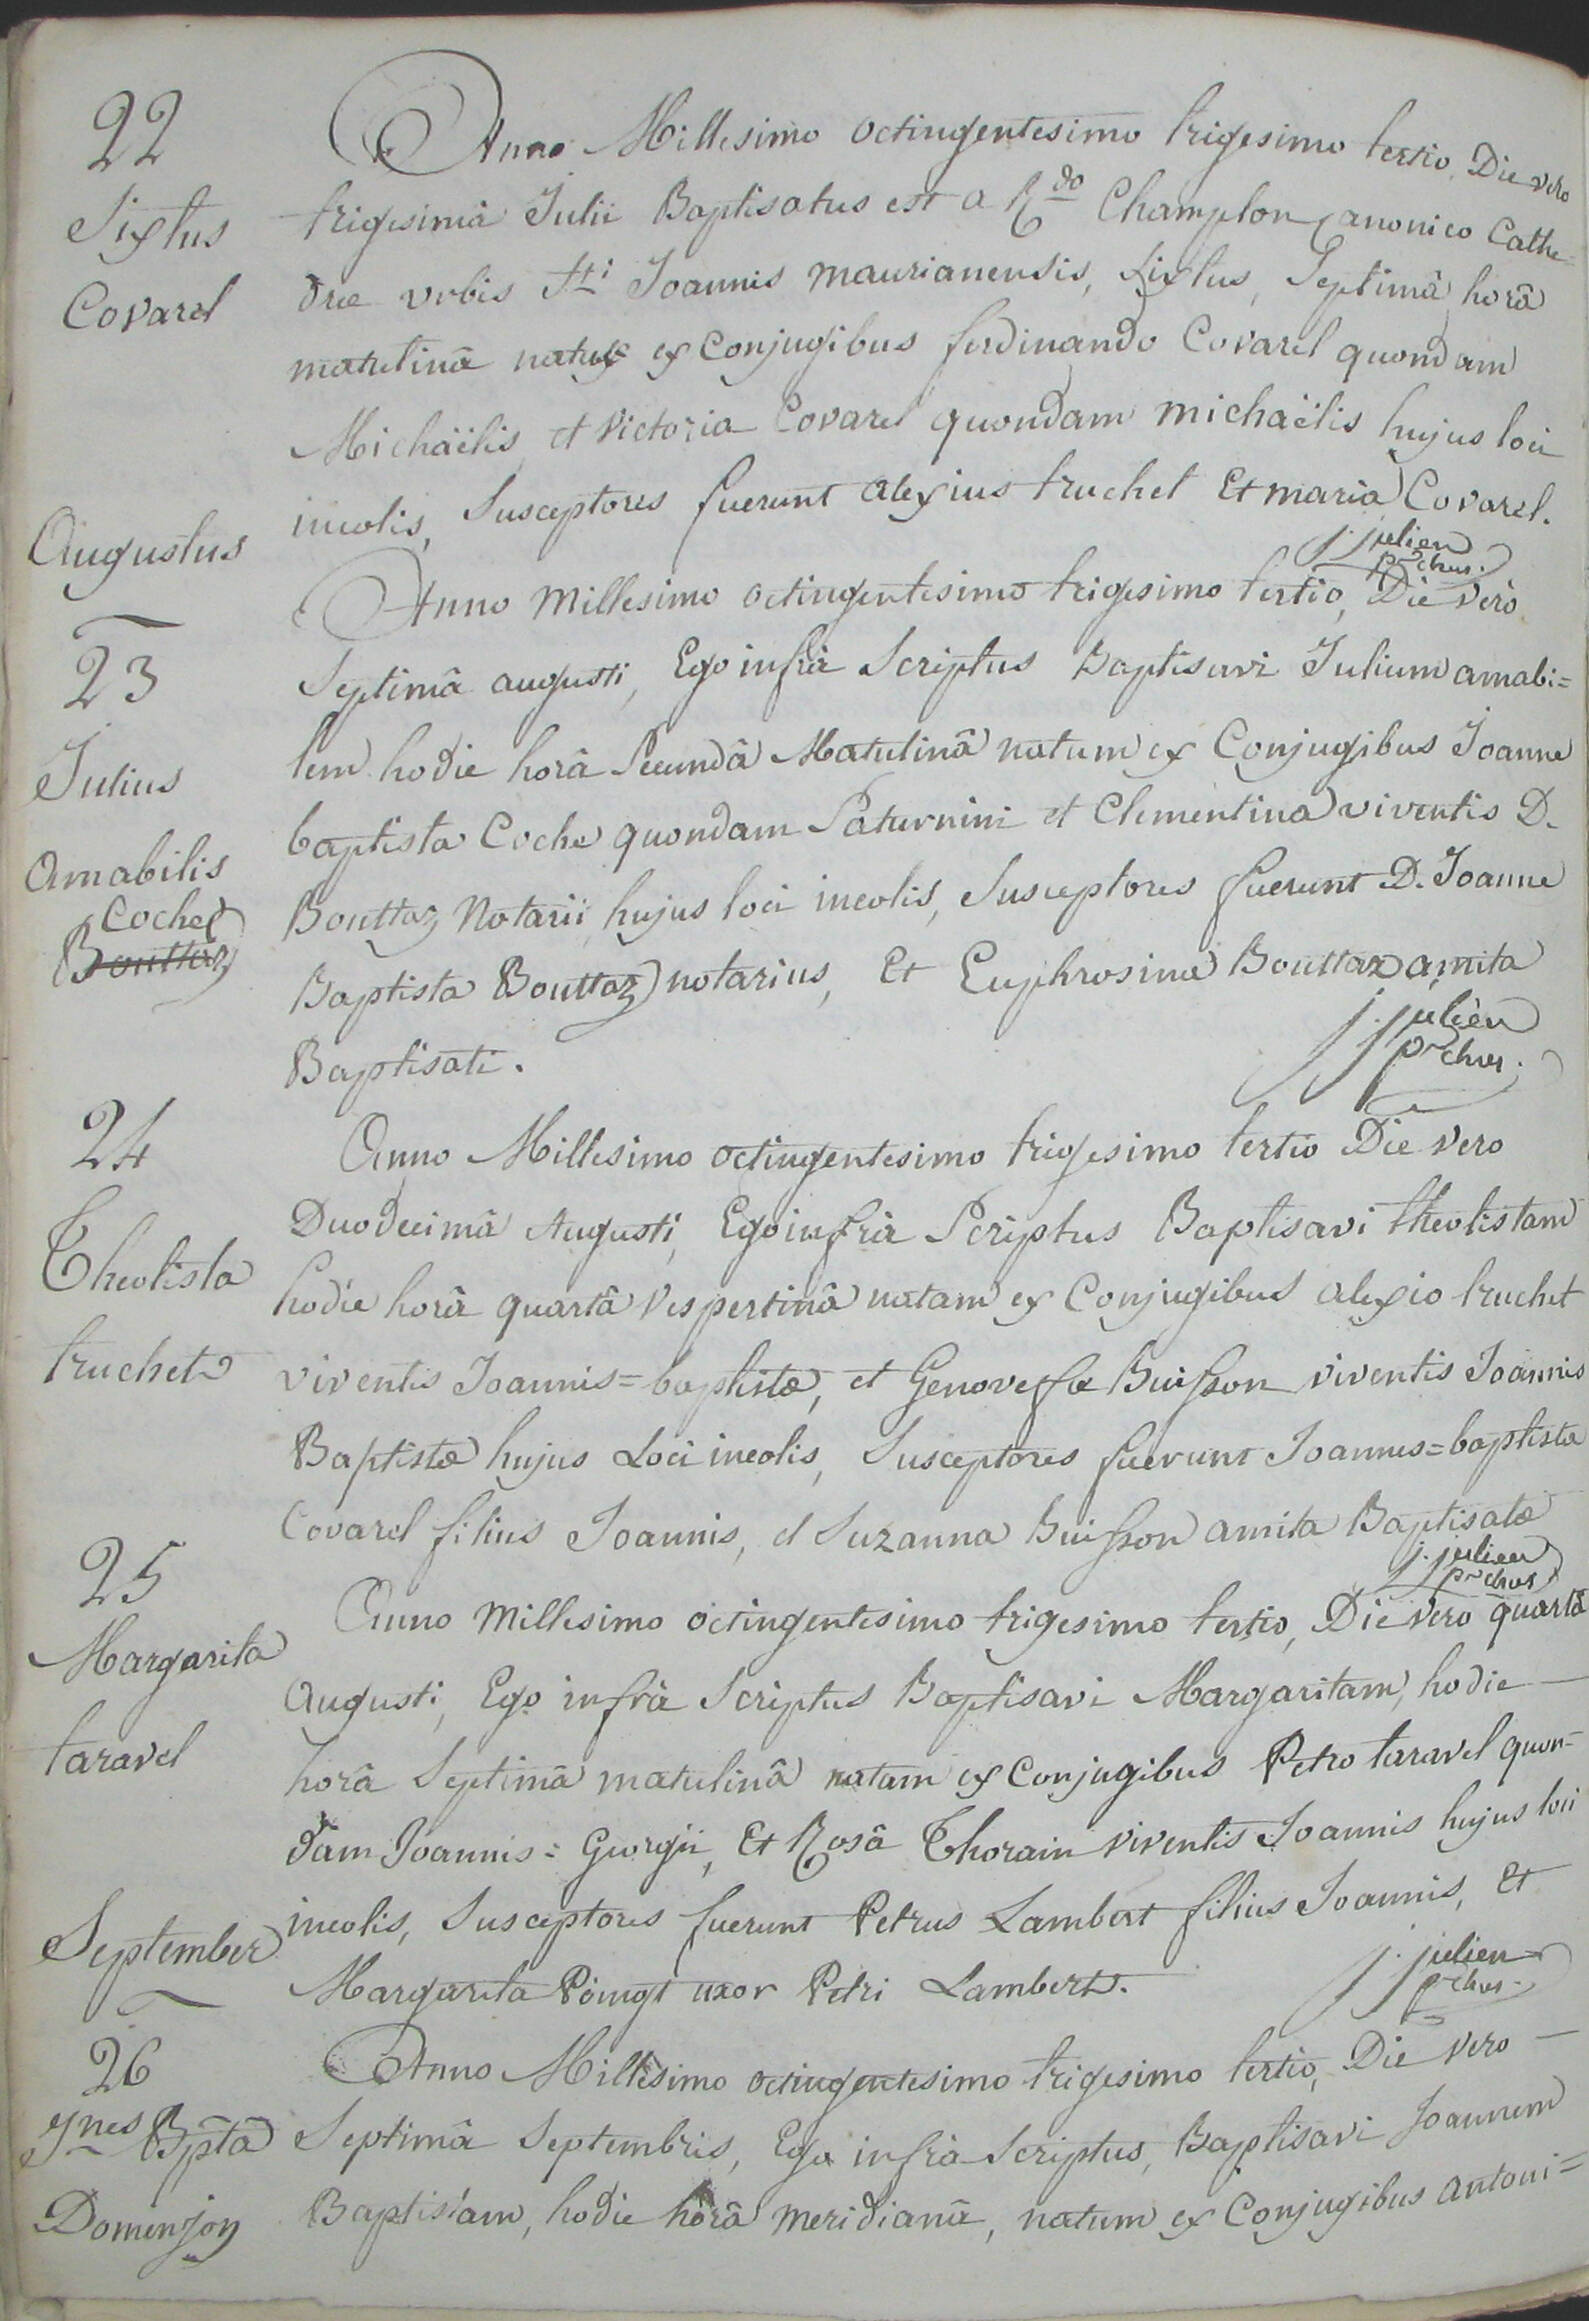 22
Sixtus
Covarel
Anno Millesimo octingentesimo trigesimo tertio, Die vero
trigesimâ Julii Baptisatus est a R.do Champlon Canonico Cathe=
dræ urbis Sti Joannis maurianensis, Sixtus, Septimâ horâ
matutinâ natus ex Conjugibus ferdinando Covarel quondam
Michaëlis et Victoria Covarel quondam michaëlis hujus loci
incolis, Susceptores fuerunt alexius truchet Et maria Covarel.
j. julien
p.r chus.
Augustus
23
Julius
Amabilis
Coche
Bouttaz
Anno Millesimo octingentesimo trigesimo tertio, Die vero
Septimâ augusti, Ego infrà Scriptus Baptisavi Julium amabi=
lem hodie horâ Secundâ Matutinâ natum ex Conjugibus Joanne
baptista Coche quondam Saturnini et Clementina viventis D.
Bouttaz Notarii hujus loci incolis, Susceptores fuerunt D. Joanne
Baptista Bouttaz notarius, Et Euphrosina Bouttaz amita
Baptisati.
j. julien
p.r chus.
24
Theolista
truchet
Anno Millesimo octingentesimo trigesimo tertio Die vero
Duodecimâ Augusti, Ego infrà Scriptus Baptisavi theolistam
hodie horâ quartâ Vespertinâ natam ex Conjugibus alexio truchet
viventis Joannis=baptistæ, et Genovefa Buisson viventis Joannis
Baptistæ hujus Loci incolis, Susceptores fuerunt Joannes=baptista
Covarel filius Joannis, et Suzanna Buisson amita Baptisatæ
j. julien
p.r chus.
25
Margarita
taravel
Anno Millesimo octingentesimo trigesimo tertio, Die vero quartâ
Augusti, Ego infrà Scriptus Baptisavi Margaritam, hodie —
horâ Septimâ matutinâ natam ex Conjugibus Petro taravel quon=
dam Joannis=Georgii, Et Rosâ Thorain viventis Joannis hujus loci
incolis, Susceptores fuerunt Petrus Lambert filius Joannis, Et
Margarita Poingt uxor Petri Lambert.
j. julien
p.r chus.
September
26
Jnes Bpta
Domenjon
Anno Millesimo octingentesimo trigesimo tertio, Die vero —
Septimâ Septembris, Ego infrà Scriptus, Baptisavi Joannem
Baptistam, hodie horâ meridianâ, natum ex Conjugibus antoni=